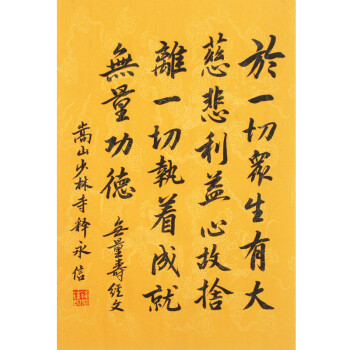 於一切眾生有大
慈悲利益心故捨
離一切執着成就
無量功德 無量壽經文
嵩山少林寺釋永信